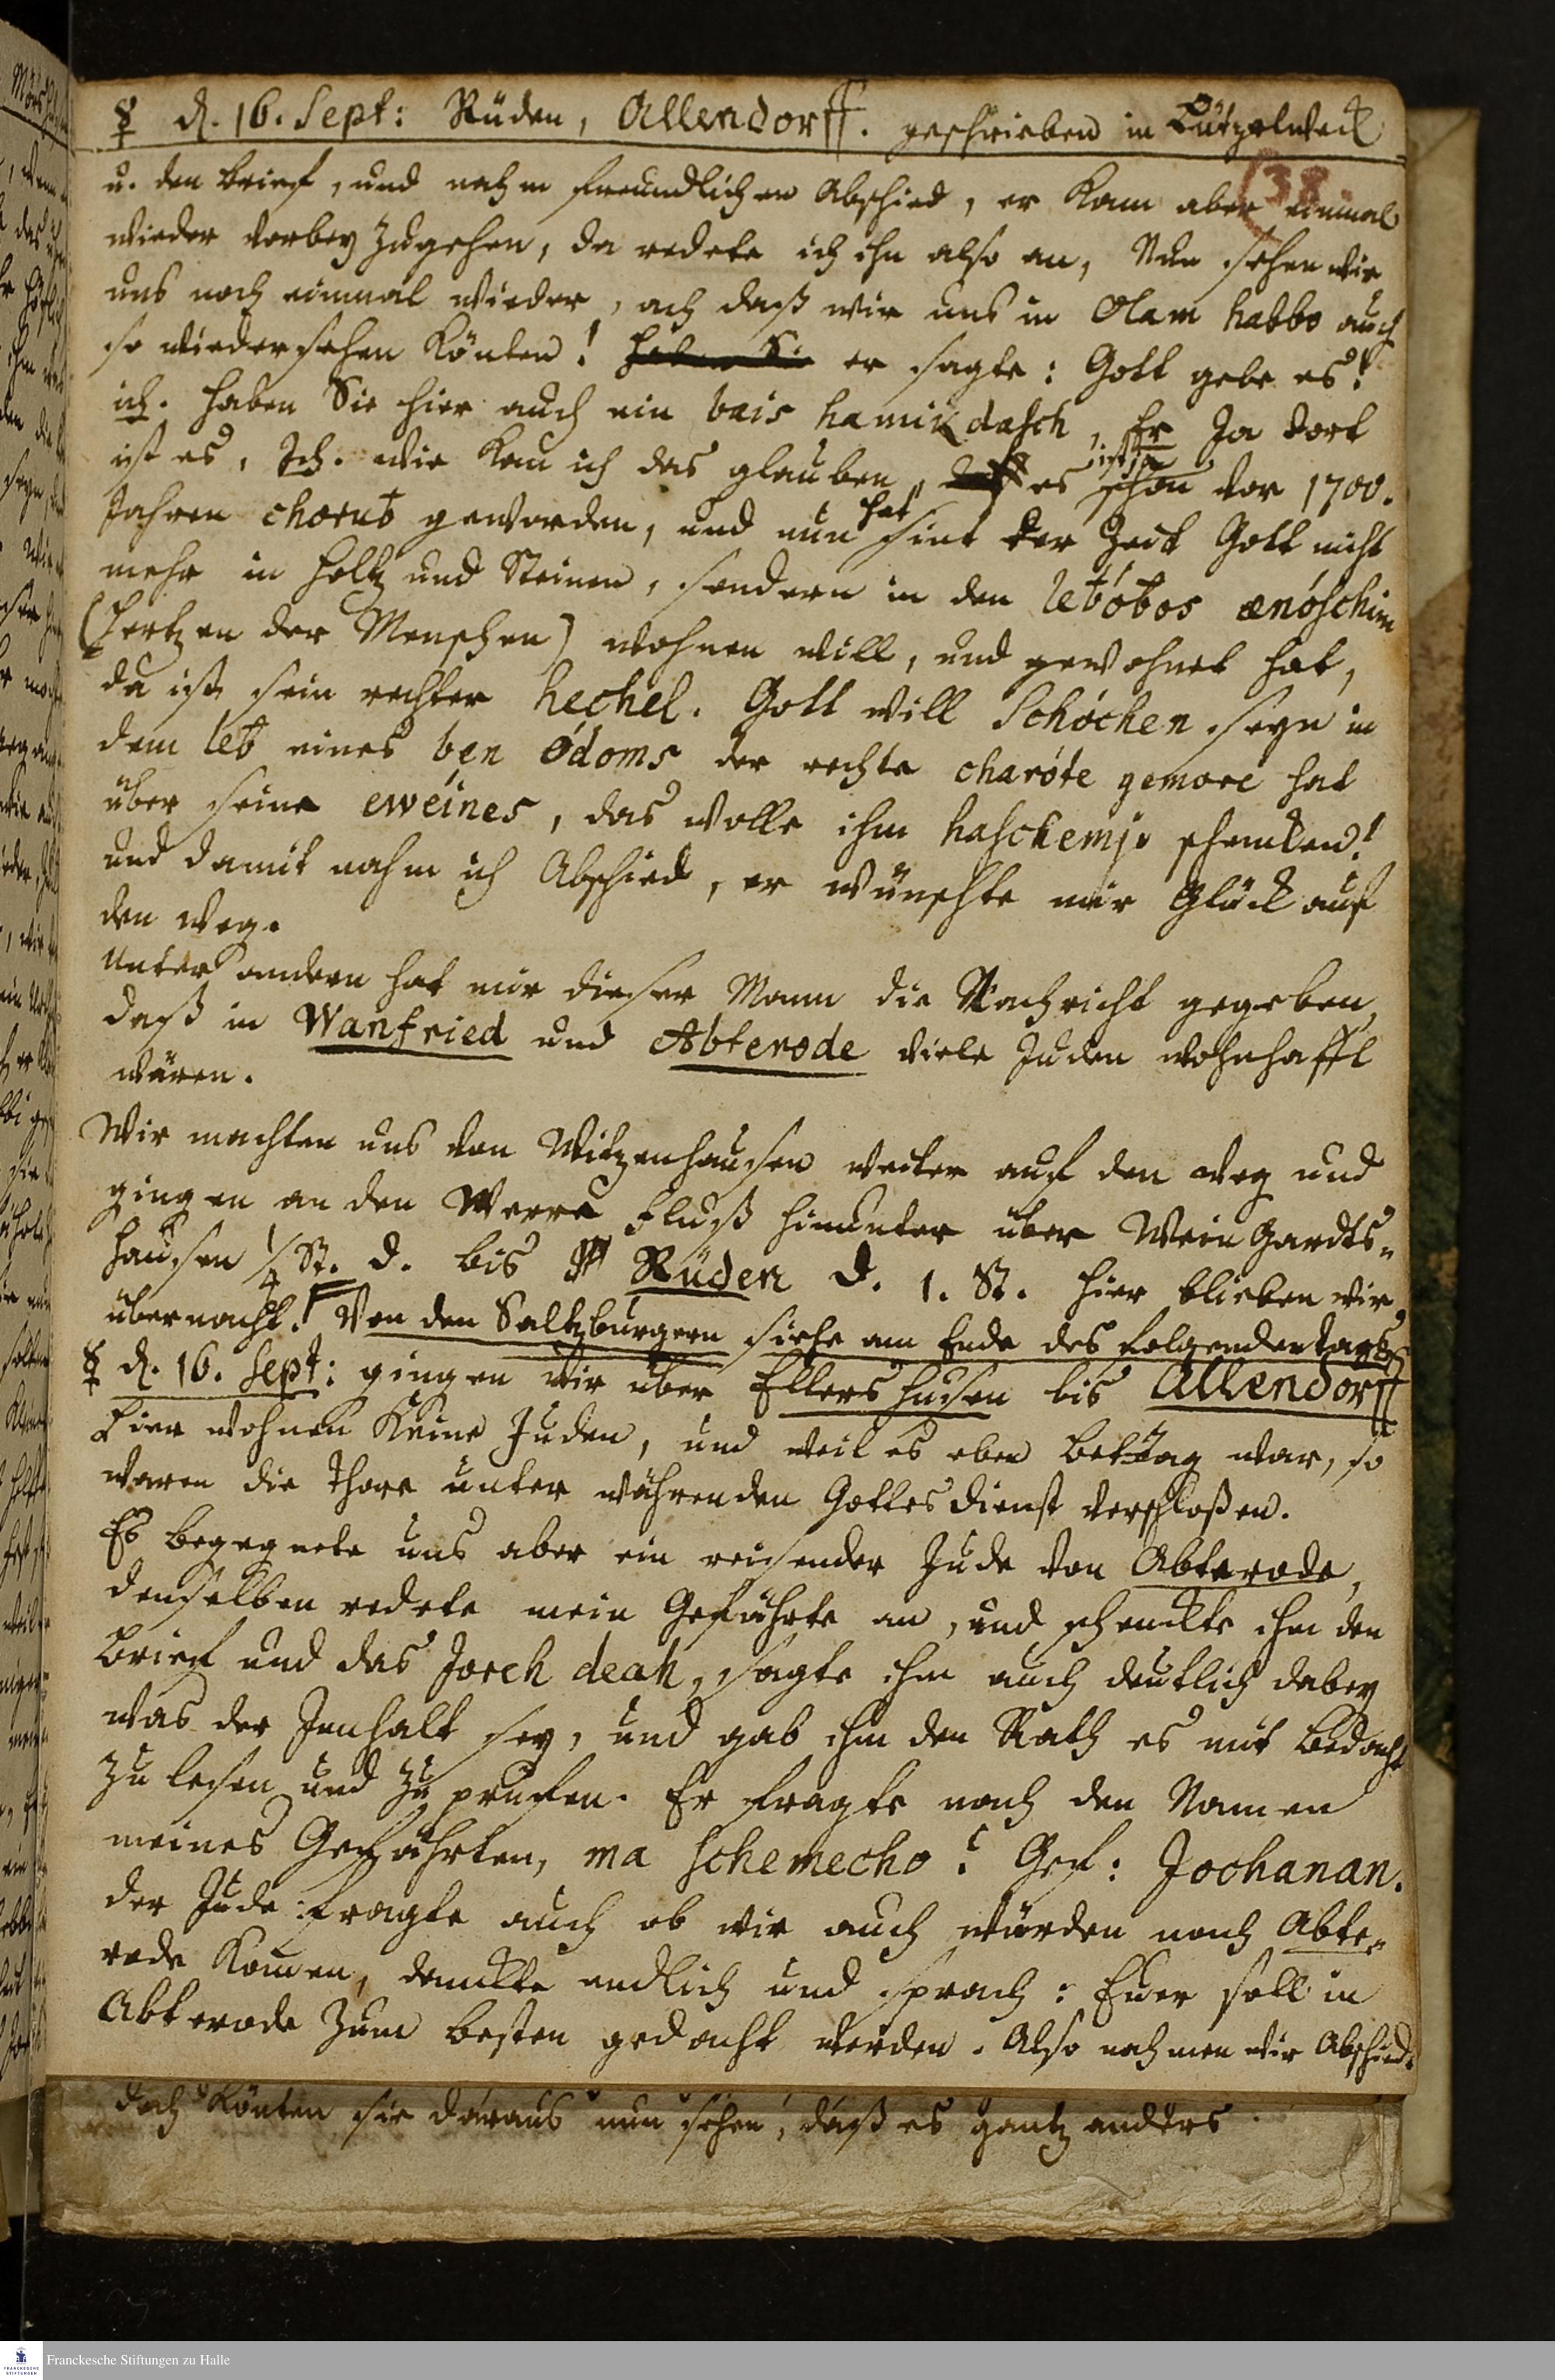 ☿ d. 16. Sept: Rüden, Allendorff. geschrieben in Lützelweil
(38.
u. den brief, und nahm freundlichen Abschied, er kam aber einmal
wieder vorbey zugehen, da redete ich ihn also an, Nun sehen wir
uns noch einmal wieder, ach daß wir uns in Olam habbo auch
so wiedersehen könten! er sagte: Gott gebe es!
ich. haben Sie hier auch ein bais hamikdasch, Er Ja dort
ist es, Ich. wie kan ich das glauben, es ist ja schon vor 1700.
Jahren chorub geworden, und nun hat sint der Zeit Gott nicht
mehr in holtz und Steinen, sondern in den lebóbos ænóschim
(hertzen der Menschen) wohnen will, und gewohnet hat,
da ist sein rechter hechel. Gott will Schóchen seyn in
dem leb eines ben Ódoms der rechte charóte gemore hat
über seine eweines, das wolle ihm haschemjo schencken!
und damit nahm ich Abschied, er wünschte mir Glück auf
den weg.
Unter andern hat mir dieser Mann die Nachricht gegeben,
daß in Wanfried und Abterode viele Juden wohnhafft
wären.
Wir machten uns von Witzenhausen weiter auf den weg und
gingen an den Werra Fluß hinunter über Wein Gardts-
hausen 1/4 St. d. bis Rüden d. 1. St. hier blieben wir
übernacht. Von den Saltzburgern siehe am Ende des folgenden tages
☿ d. 16. Sept: gingen wir über Ellershusen bis Allendorff
hier wohnen keine Juden, und weil es eben bettag war, so
waren die Thore unter währenden Gottesdienst verschloßen.
Es begegnete uns aber ein reisender Jude von Abterode,
denselben redete mein Gefährte an, und schenckte ihm den
brief und das Joreh deah, sagte ihm auch deutlich dabey
was der Innhalt sey, und gab ihm den Rath es mit bedacht
zu lesen und zu prüfen. Er fragte nach den Namen
meines Gefährten, ma schemecho? Gef: Jochanan.
der Jude fragte auch ob wir auch würden nach Abte-
rode komen, danckte endlich und sprach: Euer soll in
Abterode zum besten gedacht werden. Also nahmen wir Abschied.
doch könten sie daraus nun sehen, daß es gantz anders
Franckesche Stiftungen zu Halle